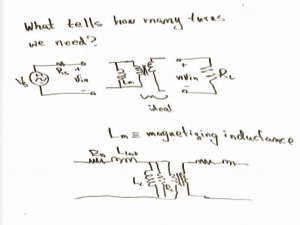 What tells how many turns
we need?
Rs + Vin - Lm + nVin - RL
Vs
ideal
Lm ≡ magnetizing inductance